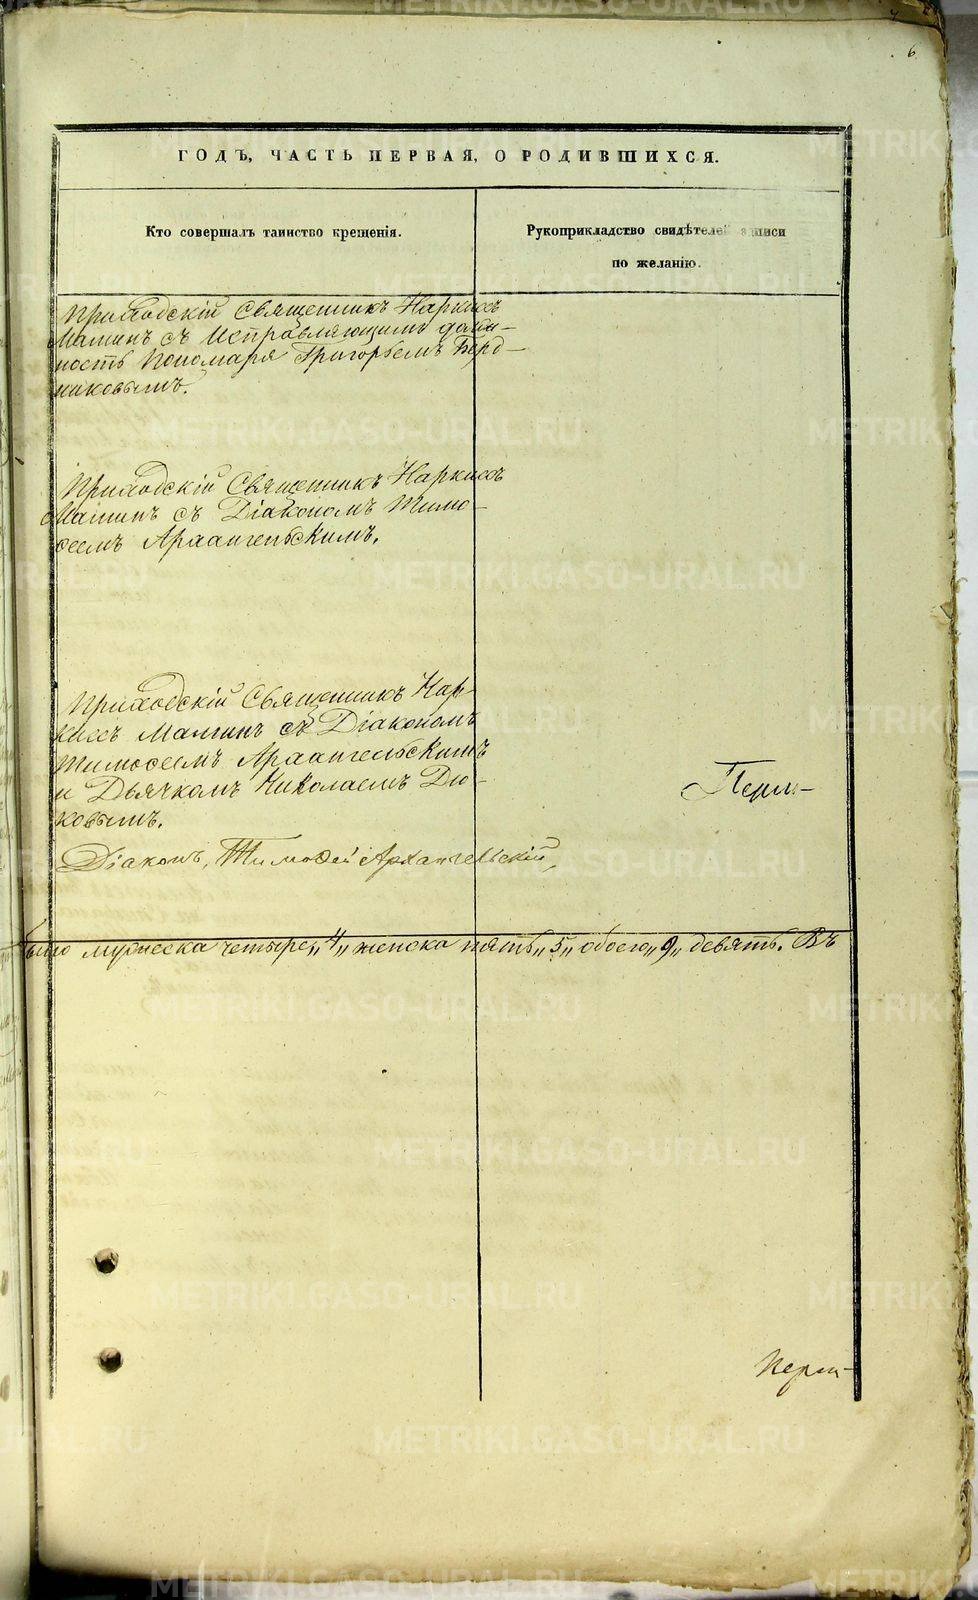 6
ГОДЪ, ЧАСТЬ ПЕРВАЯ, О РОДИВШИХСЯ.
Кто совершалъ таинство крещенія.
Рукоприкладство свидѣтелей записи
по желанію.
Приходскій Священникъ Наркиссъ
Маминъ съ Исправляющимъ долж-
ность Пономаря Григорьемъ Берд-
никовымъ.
Приходскій Священникъ Наркиссъ
Маминъ съ Діакономъ Тимо-
ѳеемъ Архангельскимъ.
Приходскій Священникъ Нар-
киссъ Маминъ съ Діакономъ
Тимоѳеемъ Архангельскимъ
и Дьячкомъ Николаемъ Дю-
ковымъ.
Перм-
Діаконъ, Тимоѳей Архангельскій,
мужеска четыре „4„ женска пять „5„ обоего „9„ девять. Въ
Перм-
METRIKI.GASO-URAL.RU